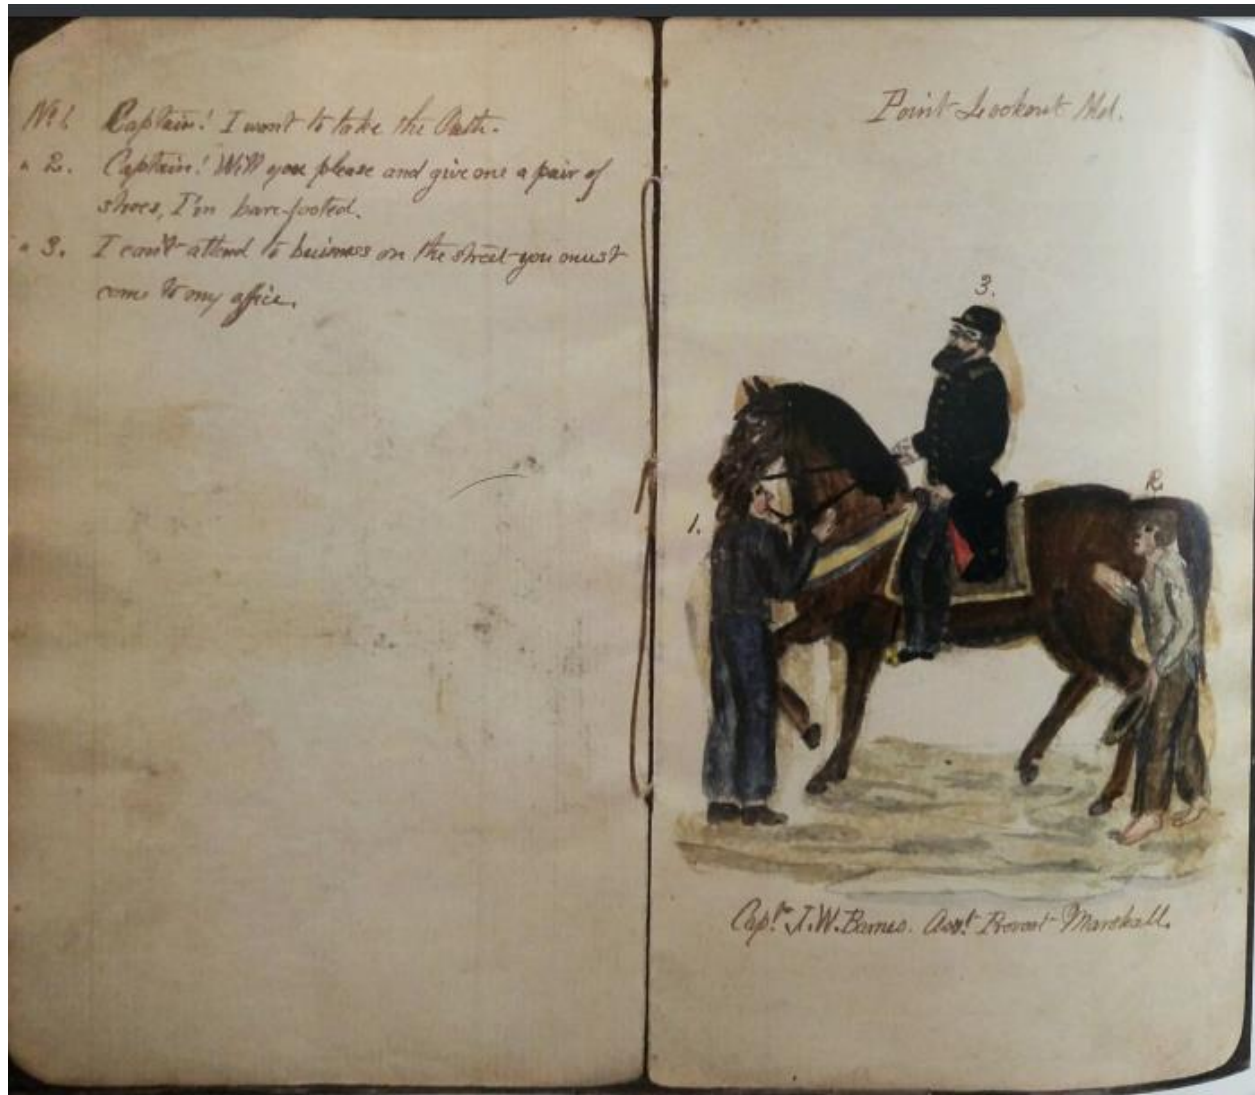 No 1. Captain! I want to take the Oath.
" 2. Captain! Will you please and give me a pair of
shoes, I'm bare-footed.
" 3. I can't attend to business on the street you must
come to my office.
Point Lookout Md.
3.
1.
2.
Capt. J. W. Barnes. Asst. Provost Marshall.